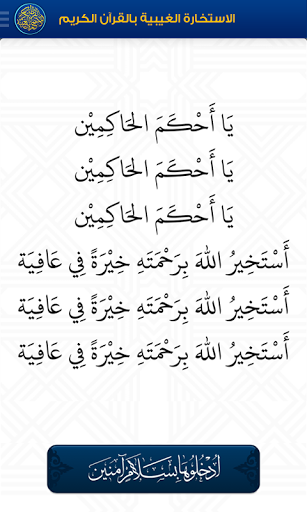 الاستخارة الغيبية بالقرآن الكريم
يَا أَحْكَمَ الحَاكِمِيْن
يَا أَحْكَمَ الحَاكِمِيْن
يَا أَحْكَمَ الحَاكِمِيْن
أَسْتَخِيرُ اللهَ بِرَحْمَتَهِ خِيْرَةً فِي عَافِيَة
أَسْتَخِيرُ اللهَ بِرَحْمَتَهِ خِيْرَةً فِي عَافِيَة
أَسْتَخِيرُ اللهَ بِرَحْمَتَهِ خِيْرَةً فِي عَافِيَة
اُدْخُلُوهَا بِسَلَامٍ آمِنِينَ